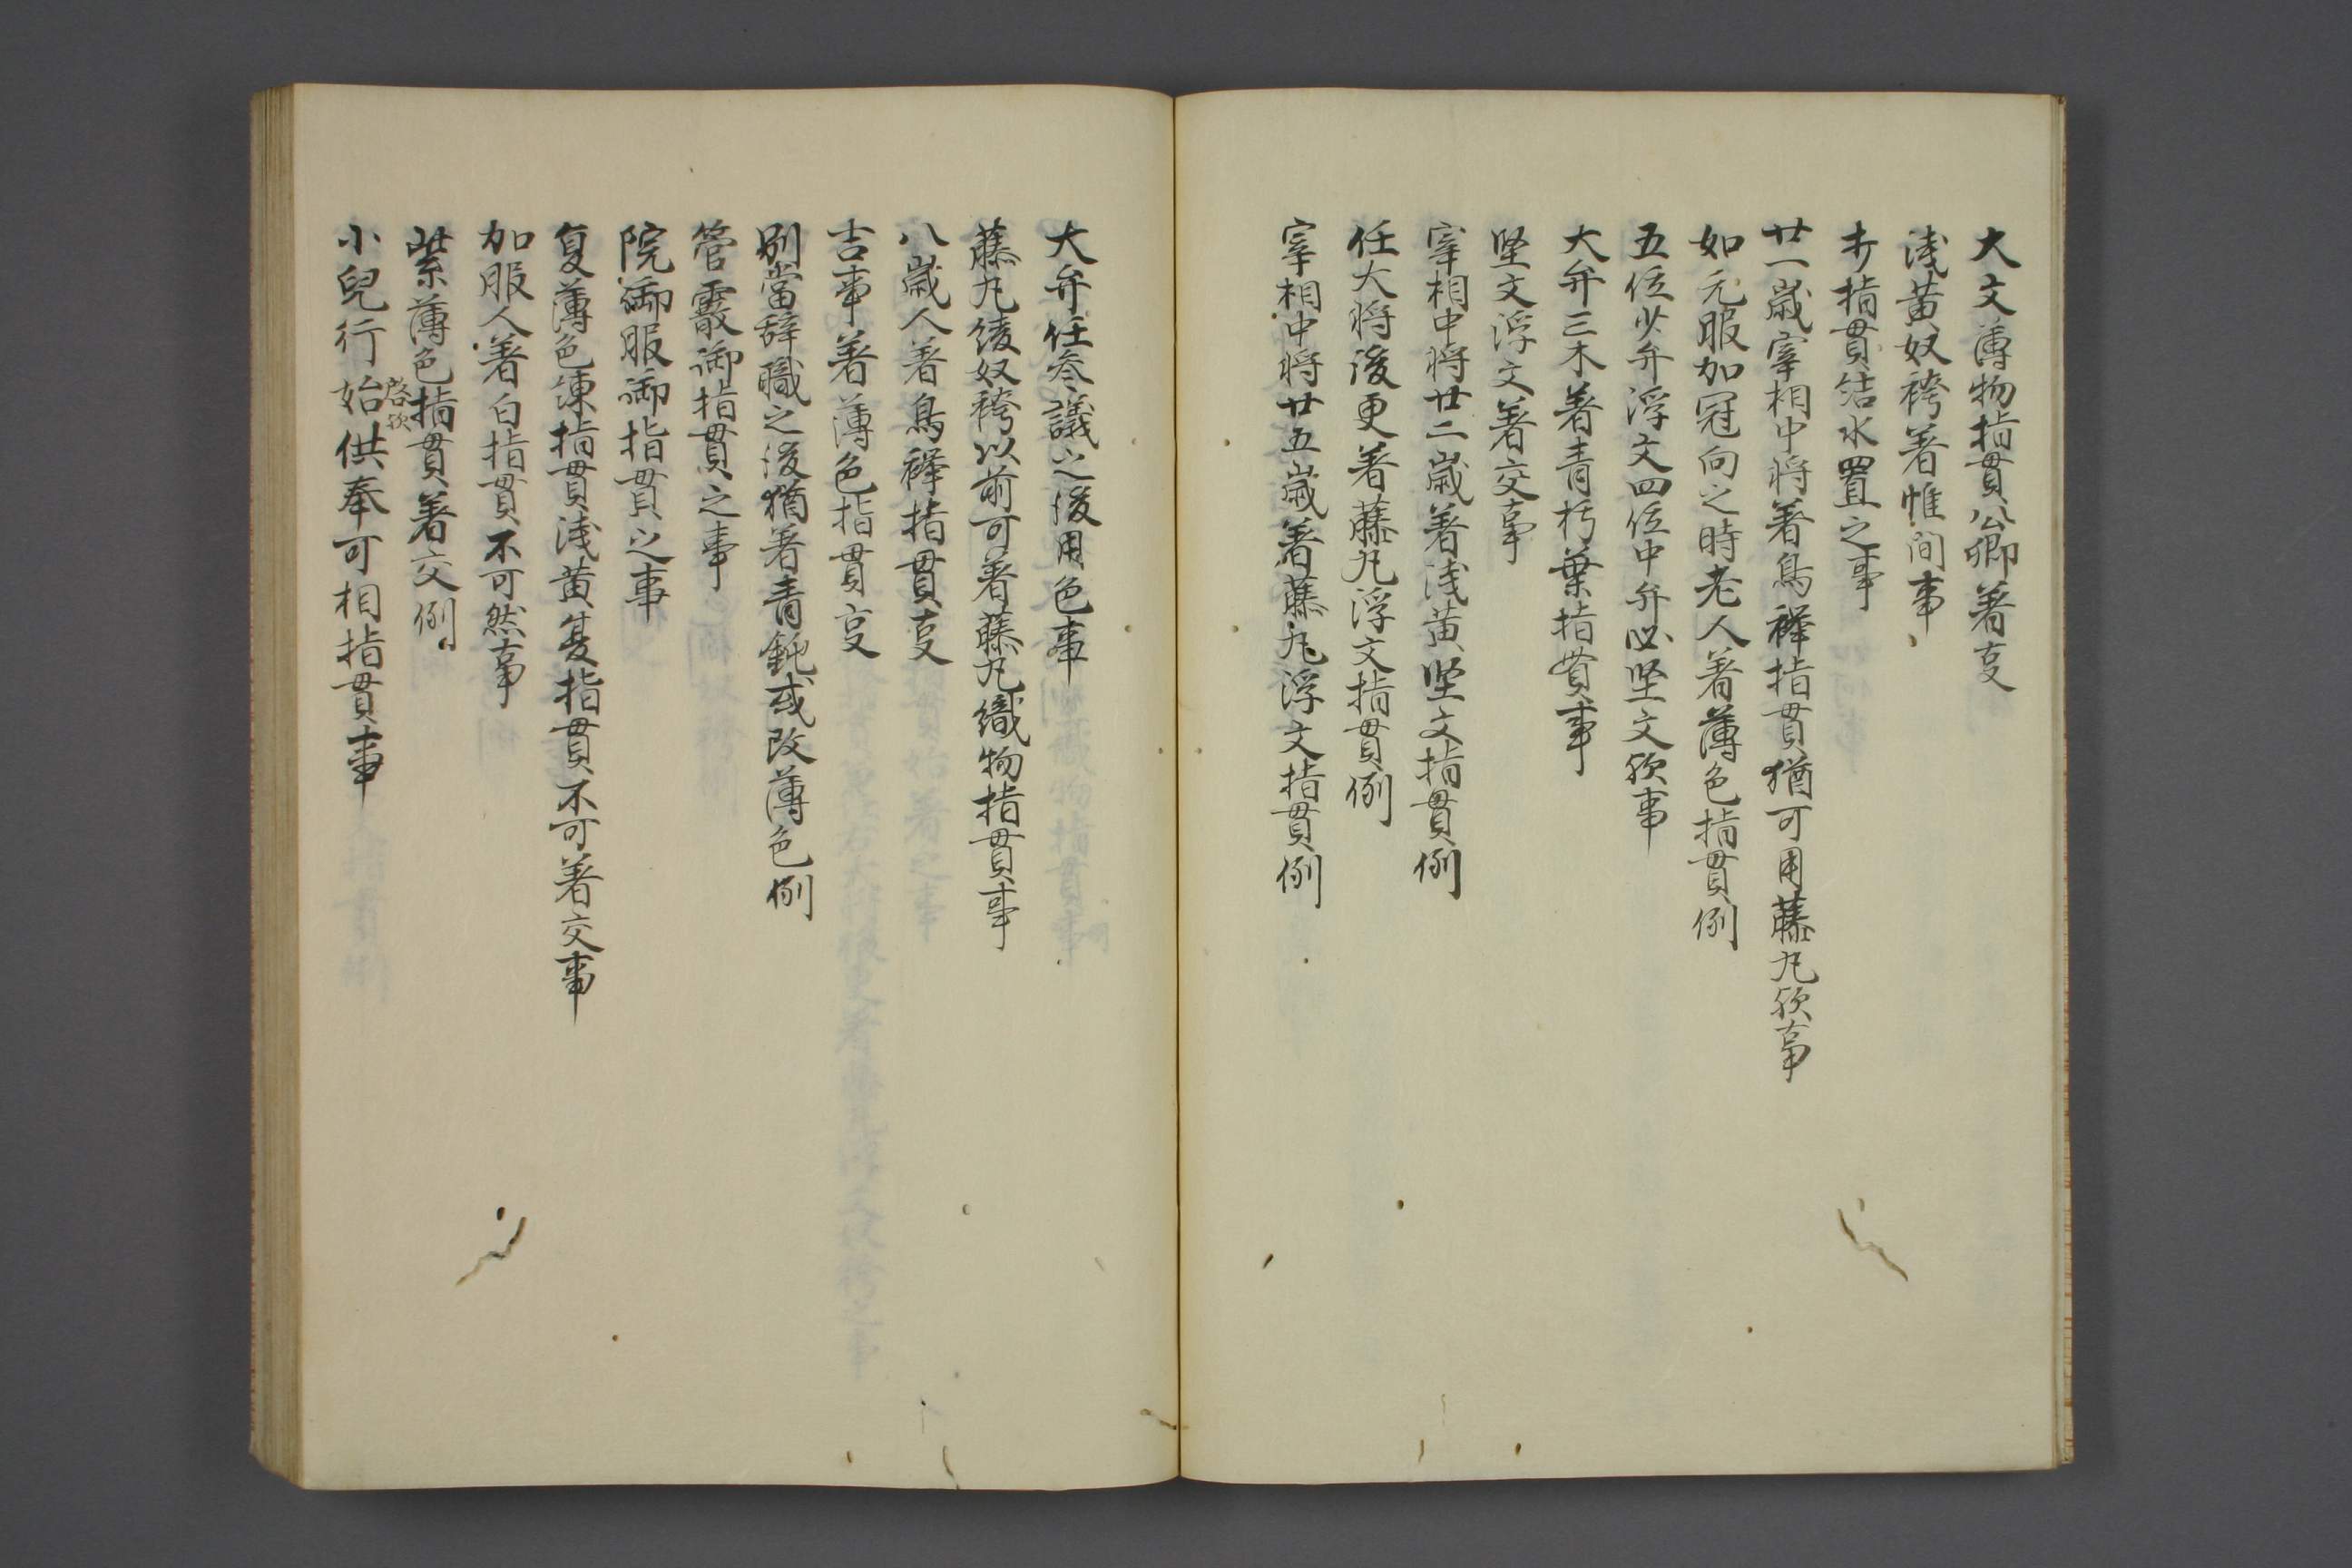 大文薄物指貫公卿著叓
浅黄奴袴著帷間事
指貫結水置之事
廿一歳宰相中将著鳥襷指貫猶可用藤丸欤事
如元服加冠向之時老人著薄色指貫例
五位少弁浮文四位中弁必堅文欤事
大弁三木著青朽葉指貫事
堅文浮文著交事
宰相中将廿二歳著浅黄堅文指貫例
任大将後更著藤丸浮文指貫例
宰相中将廿五歳著藤丸浮文指貫例
大弁任参議之後用色事
藤丸綾奴袴以前可著藤丸織物指貫事
八歳人著鳥襷指貫叓
吉事著薄色指貫叓
別當辞職之後猶著青鈍或改薄色例
管霰御指貫之事
院御服御指貫之事
夏薄色凍指貫浅黄夏指貫不可著交事
加服人著白指貫不可然事
紫薄色指貫著交例
小兒行始供奉可相指貫事
啓欤